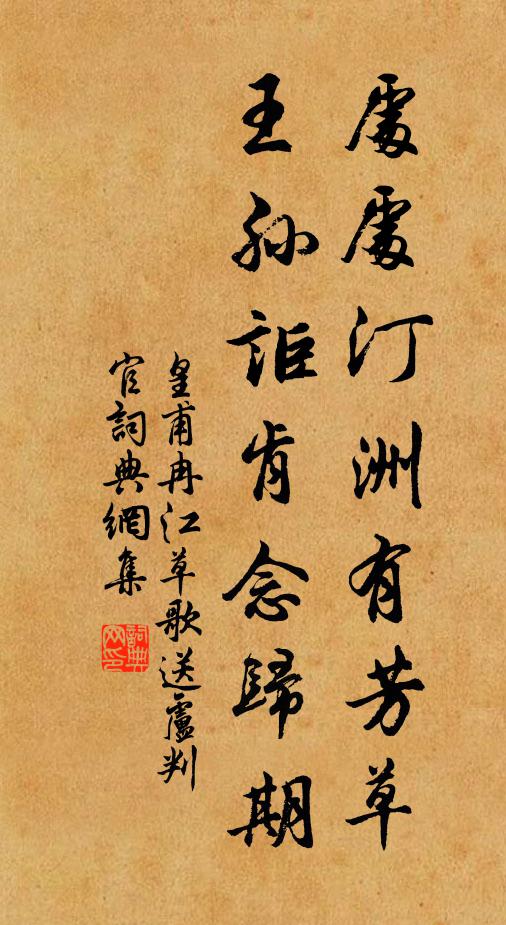 處處汀洲有芳草
王孫詎肯念歸期
皇甫冉江草歌送盧判
官詞典網集
詞典
网印